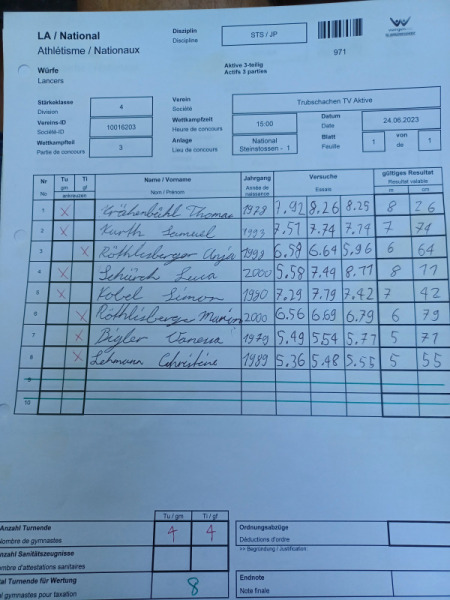 LA / National
Athlétisme / Nationaux
Disziplin
Discipline
STS / JP
971
Würfe
Lancers
Aktive 3-teilig
Actifs 3 parties
Stärkeklasse
Division
4
Verein
Société
Trubschachen TV Aktive
Vereins-ID
Société-ID
10016203
Wettkampfzeit
Heure de concours
15:00
Datum
Date
24.06.2023
Wettkampfteil
Partie de concours
3
Anlage
Lieu de concours
National
Steinstossen - 1
Blatt
Feuille
1
von
de
1
Nr Tu Ti Name / Vorname Jahrgang Versuche gültiges Resultat
No gm gf Nom / Prénom Année de naissance Essais Résultat valable
ankreuzen m cm
1 X Krähenbühl Thomas 1978 7.92 8.26 8.25 8 26
2 X Kurth Samuel 1993 7.51 7.74 7 74
3 X Röthlisberger 1998 6.58 6.64 5.96 6 64
4 X Schürch Luca 2000 5.58 7.44 8.11 8 11
5 X Kobel Simon 1990 7.29 7.79 7.42 7 42
6 X Röthlisberger 2000 6.56 6.69 6.79 6 79
7 X Bigler Vanessa 1979 5.49 5.54 5.71 5 71
8 X Lehmann Christine 1989 5.36 5.48 5.55 5 55
9
10
Tu / gm Ti / gf
Anzahl Turnende
Nombre de gymnastes
4 4
Anzahl Sanitätszeugnisse
Nombre d'attestations sanitaires
Total Turnende für Wertung
gymnastes pour taxation
8
Ordnungsabzüge
Déductions d'ordre
>> Begründung / Justification:
Endnote
Note finale